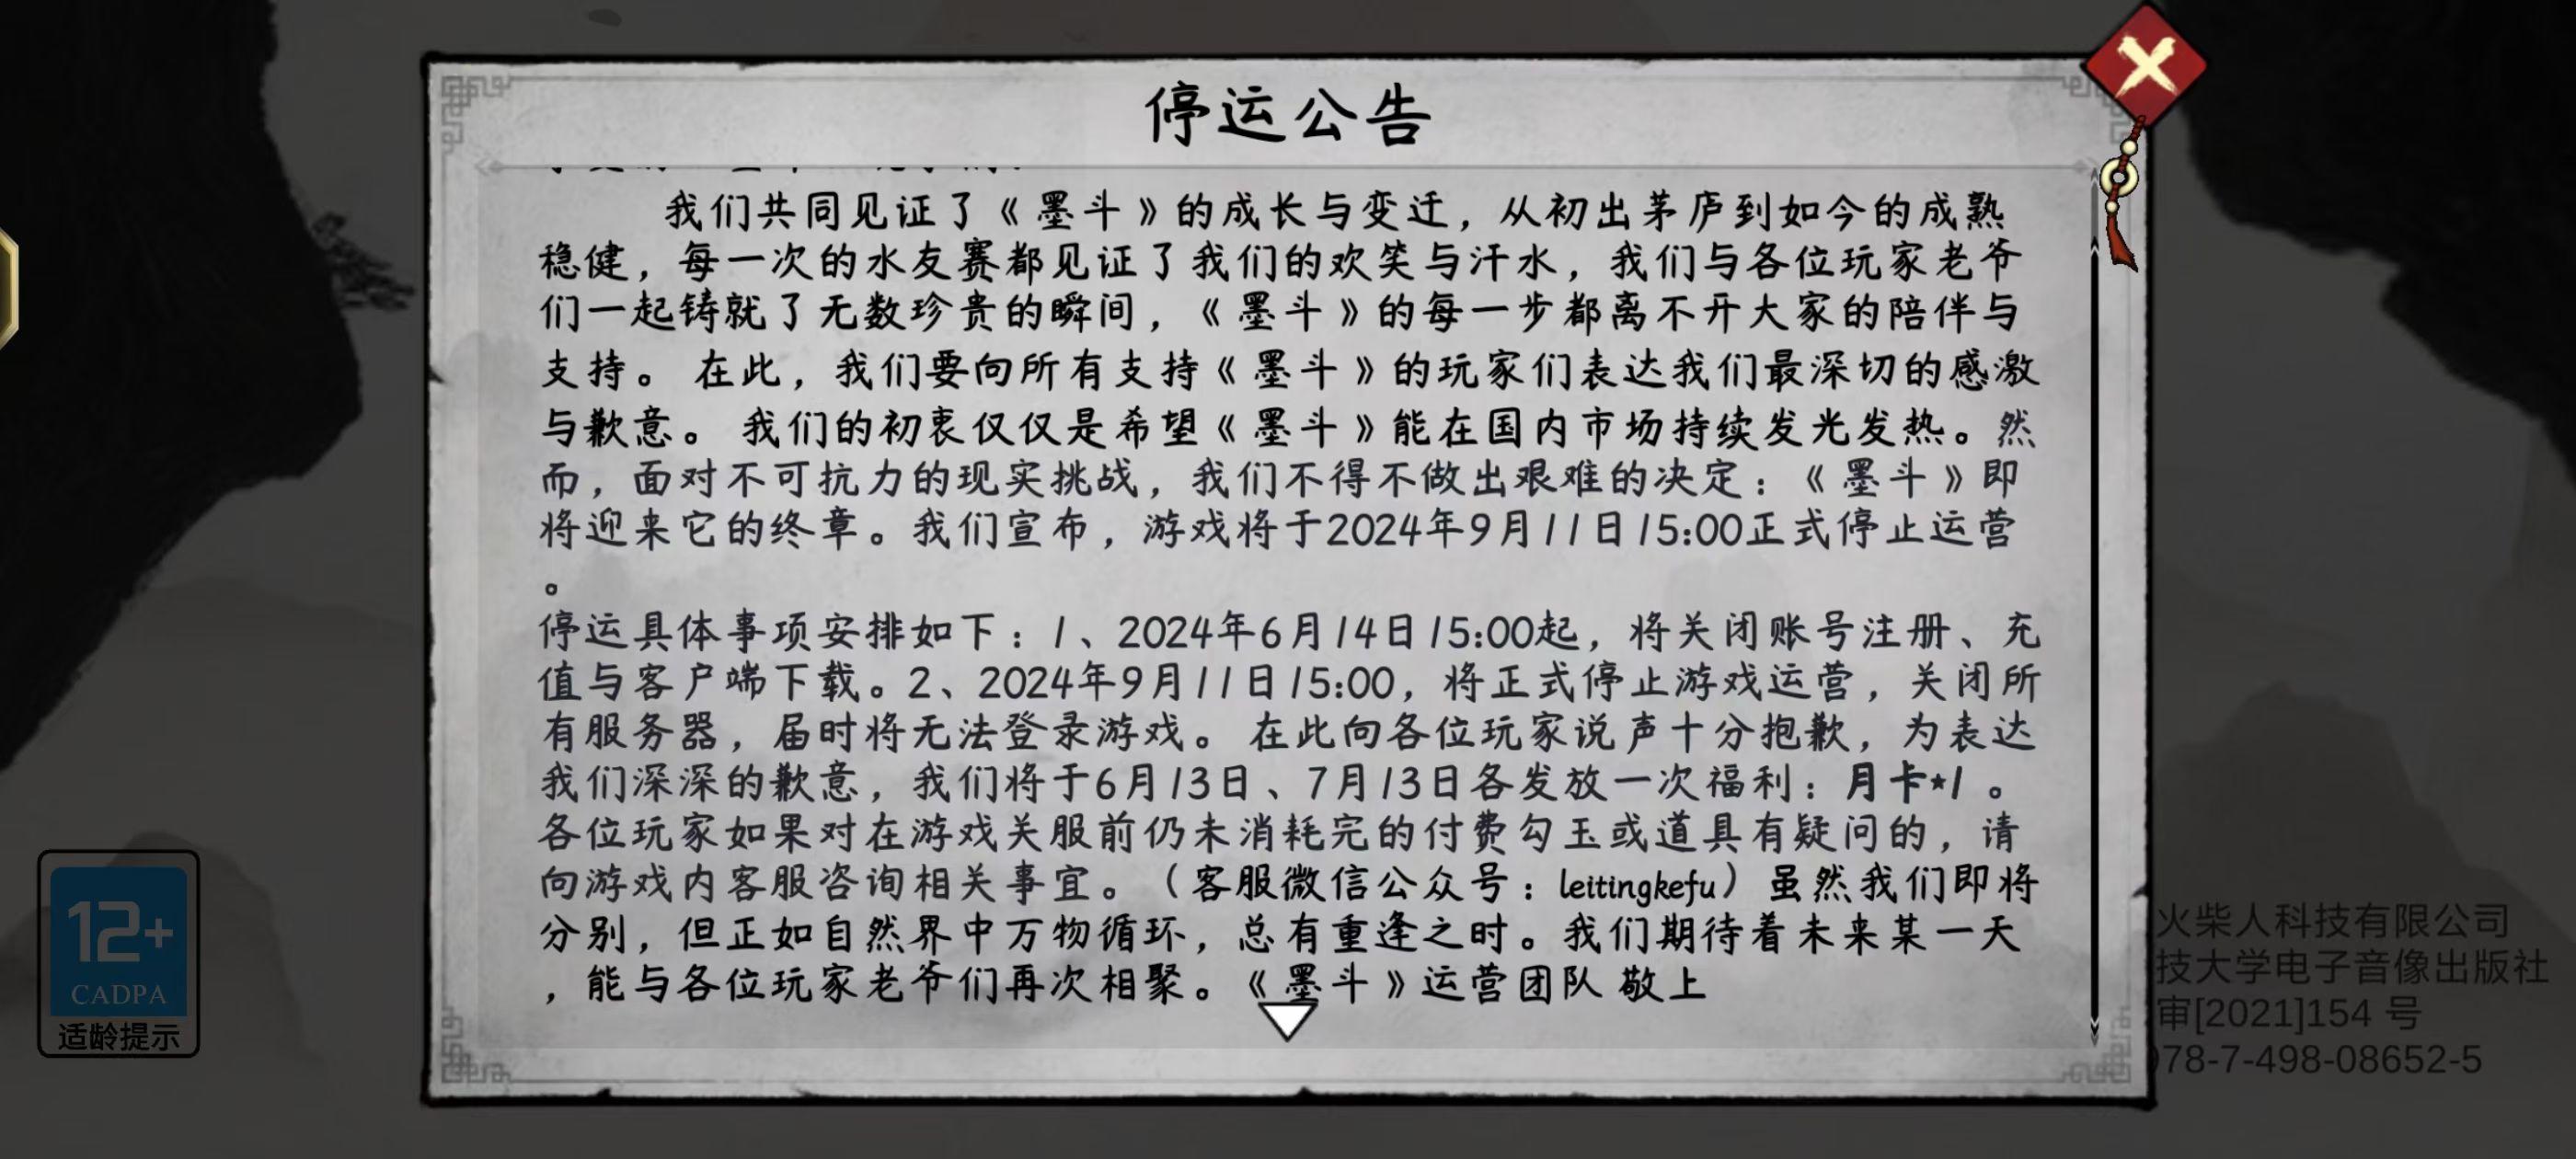 停运公告
我们共同见证了《墨斗》的成长与变迁，从初出茅庐到如今的成熟
稳健，每一次的水友赛都见证了我们的欢笑与汗水，我们与各位玩家老爷
们一起铸就了无数珍贵的瞬间，《墨斗》的每一步都离不开大家的陪伴与
支持。 在此，我们要向所有支持《墨斗》的玩家们表达我们最深切的感激
与歉意。 我们的初衷仅仅是希望《墨斗》能在国内市场持续发光发热。然
而，面对不可抗力的现实挑战，我们不得不做出艰难的决定：《墨斗》即
将迎来它的终章。我们宣布，游戏将于2024年9月11日15:00正式停止运营
。
停运具体事项安排如下：1、2024年6月14日15:00起，将关闭账号注册、充
值与客户端下载。2、2024年9月11日15:00，将正式停止游戏运营，关闭所
有服务器，届时将无法登录游戏。 在此向各位玩家说声十分抱歉，为表达
我们深深的歉意，我们将于6月13日、7月13日各发放一次福利：月卡*1 。
各位玩家如果对在游戏关服前仍未消耗完的付费勾玉或道具有疑问的，请
向游戏内客服咨询相关事宜。（客服微信公众号：leitingkefu）虽然我们即将
分别，但正如自然界中万物循环，总有重逢之时。我们期待着未来某一天
，能与各位玩家老爷们再次相聚。《墨斗》运营团队 敬上
12+
CADPA
适龄提示
火柴人科技有限公司
技大学电子音像出版社
审[2021]154 号
78-7-498-08652-5